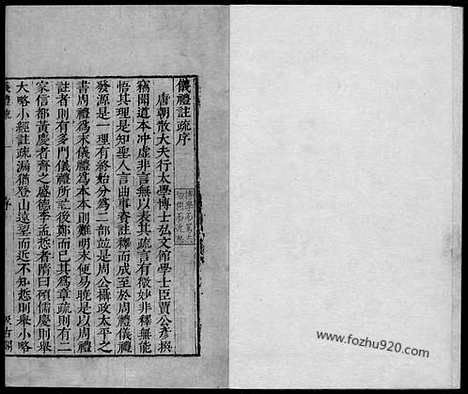 儀禮註疏序
唐朝散大夫行太學博士弘文館學士臣賈公彥撰
竊聞道本冲虛非言無以表其疏言有微妙非釋無能
悟其理是知聖人言曲事資註釋而成至於周禮儀禮
發源是一理有終始分為二部並是周公攝政太平之
書周禮為末儀禮為本本則難明末便易曉是以周禮
註者則有多門儀禮所註後鄭而已其為章疏則有二
家信都黃慶者齊之盛德李孟悊者隋曰碩儒慶則舉
大略小經註疏漏猶登山遠望而近不知悊則舉小略
儀禮疏 序
汲古閣
www.fozhu920.com